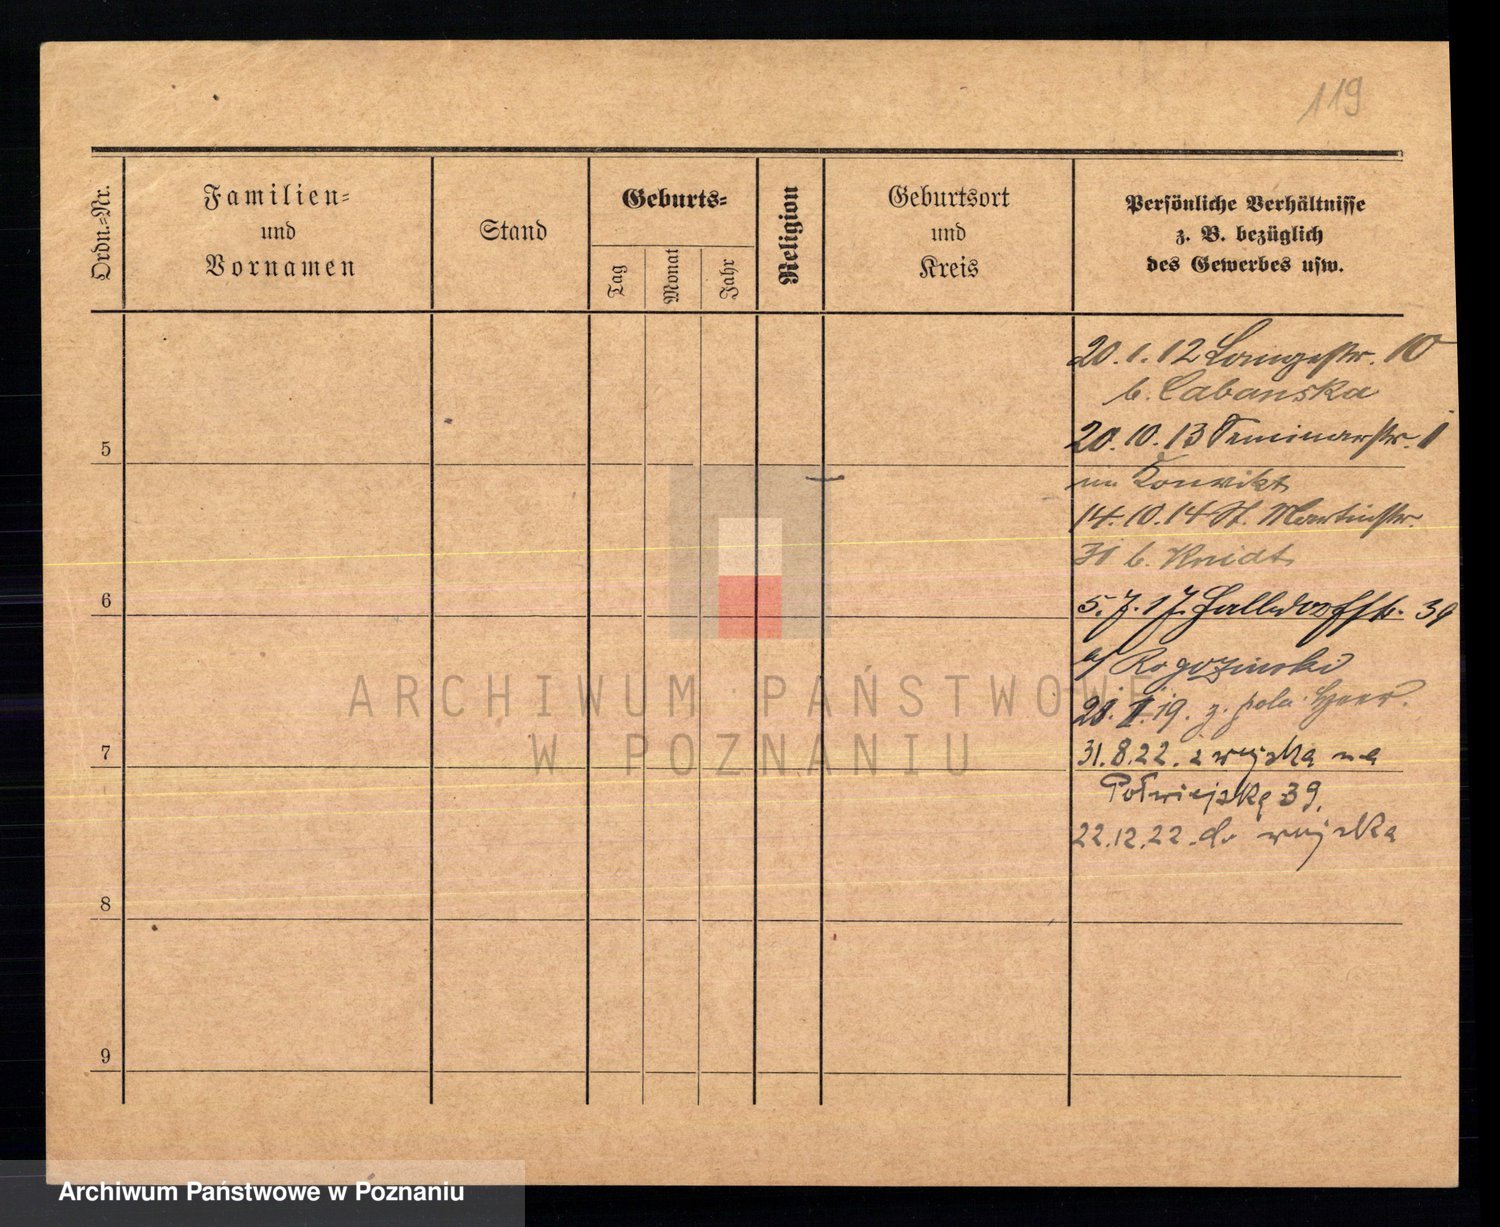 119
Ordn.=Nr.
Familien=
und
Vornamen
Stand
Geburts=
Tag
Monat
Jahr
Religion
Geburtsort
und
Kreis
Persönliche Verhältnisse
z. B. bezüglich
des Gewerbes usw.
20.1.12 Langestr. 10
b. Cabanska
5
20.10.13 Seminarstr. 1
im Konvikt
14.10.14 St. Martinstr.
31 b. Knidt
6
5.7.17. Halldorffstr. 39
b/ Rogozinski
28. 19. z. poln. Heer.
7
31.8.22. z wojska na
Półwiejską 39.
22.12.22. do wojska
8
9
ARCHIWUM PAŃSTWOWE
W POZNANIU
Archiwum Państwowe w Poznaniu